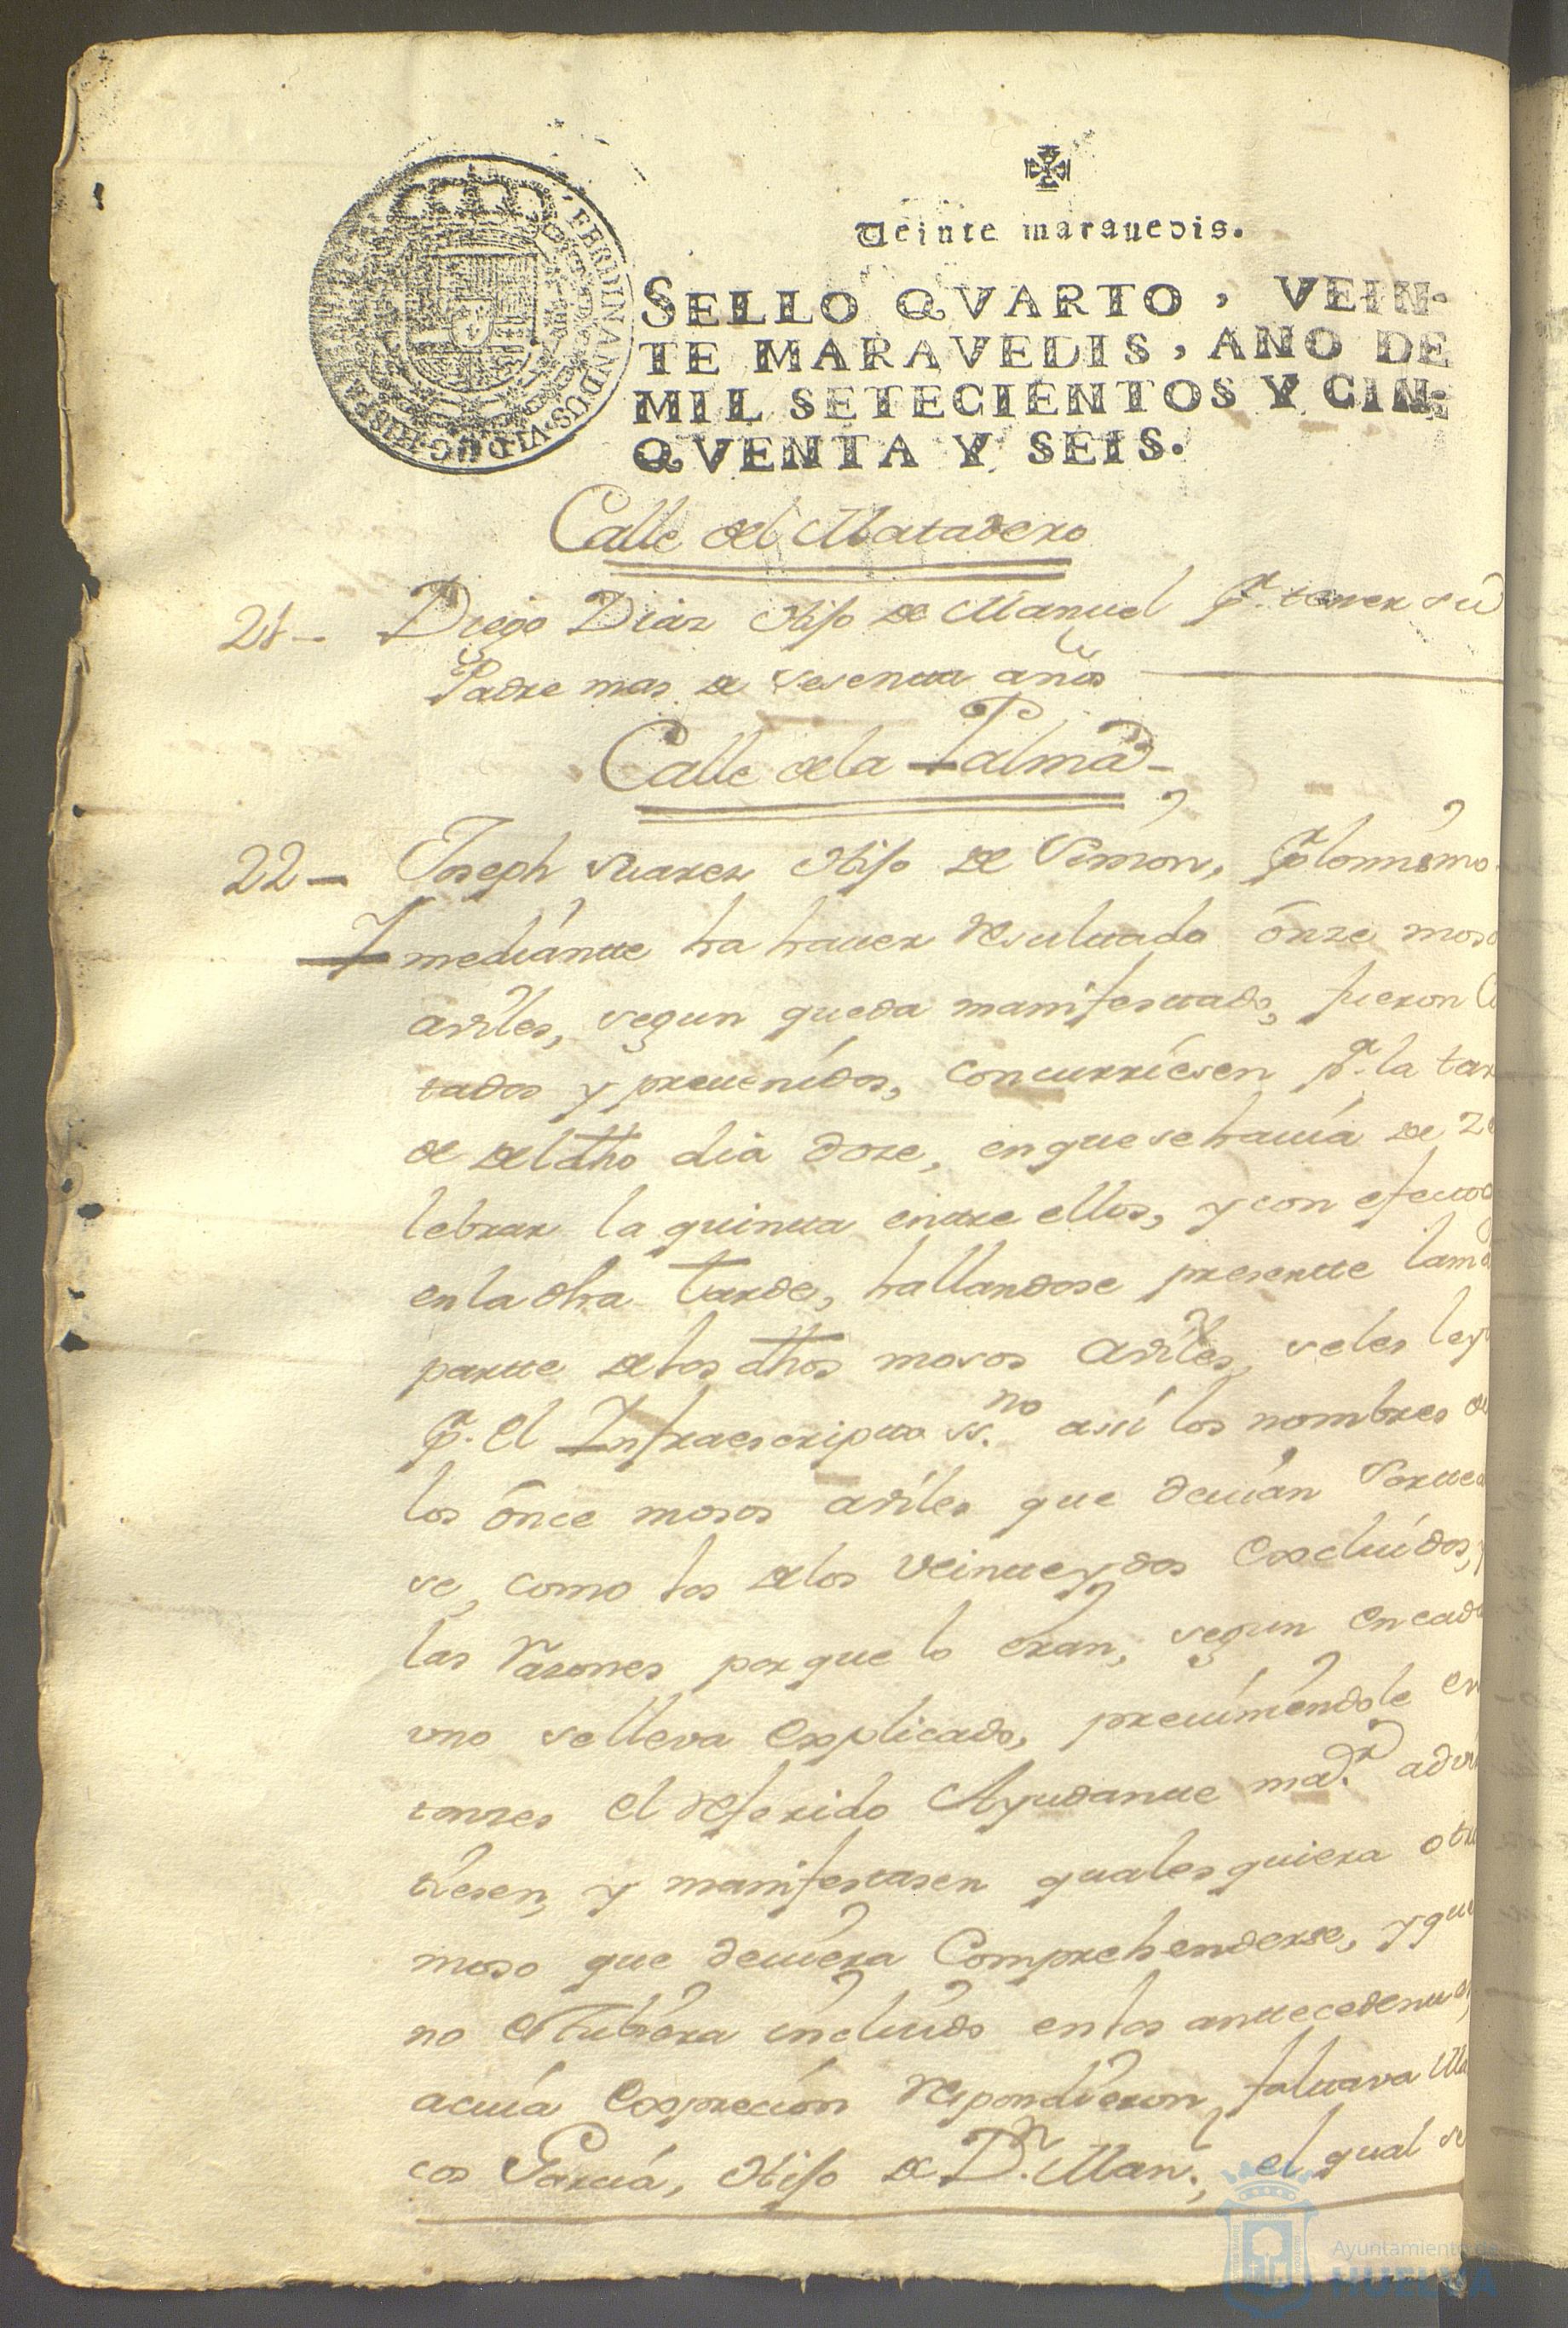 Veinte maravedis.
SELLO QVARTO, VEIN-
TE MARAVEDIS, AÑO DE
MIL SETECIENTOS Y CIN-
QVENTA Y SEIS.
FERDINANDUS·VI·D·G·HISPANIARUM
Calle del Matadero
21- Diego Diaz Hijo de Manuel pr. tener su
Padre mas de sesenta años
Calle dela Palma-
22- Joseph Suarez Hijo de Simon, pr lo mismo
Y mediantte ha haver resultado onze moso
aviles, segun queda manifestado, fueron Ci
tados y prevenidos, concurriesen pa. la tar
de del dho dia doze, en que se havia de ze
lebrar la quinta entre ellos, y con efecto
en la dha tarde, hallandose presentte la ma
partte de los dhos mosos aviles, se les leyo
pr. el Infraescripto ss.no asi los nombres de
los once mosos aviles que devian Sortea
se, como los de los veinte y dos Excluidos, y
las razones porque lo eran, segun en cada
uno se lleva explicado, previniendole en
tonzes el referido Ayudante mar. advir
tiesen, y manifestasen quales quiera otro
moso que deviera Comprehenderse, y que
no estubiera incluido en los antecedentes
a cuia Exprecion respondieron, faltava Ma
cos Garcia, Hijo de Dn. Man., el qual se
Ayuntamiento de
HUELVA